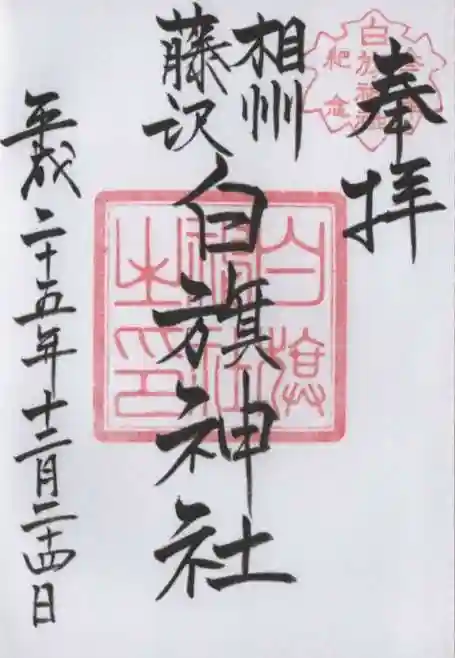 奉拝
白旗神社
参拝
記念
相州
藤沢
白旗神社
白旗
神社
之印
平成二十五年十二月二十四日